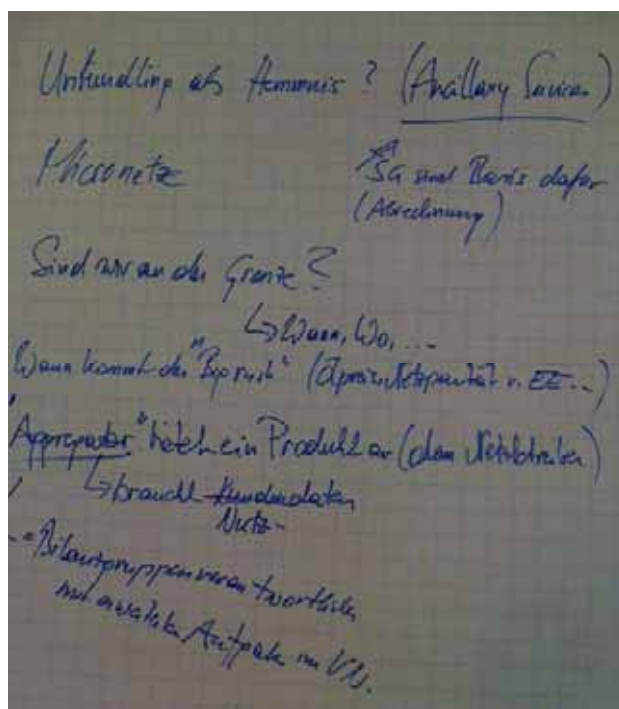 Unbundling als Hemmnis? (Ancillary Services)
Micronetze
SG sind Basis dafür
(Abrechnung)
Sind wir an der Grenze?
↳ Wann, Wo, ...
Wann kommt der "Big rush" (Netzparität v. EE...)
"Aggregator" bietet ein Produkt an (dem Netzbetreiber)
↳ braucht Kundendaten
Netz-
= Bilanzgruppenverantwortlicher
mit erweiterten Aufgaben im VN.